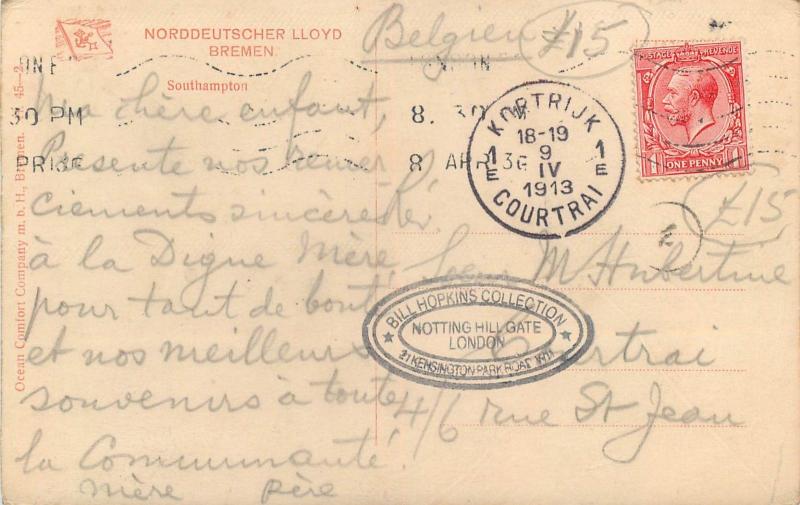 NORDDEUTSCHER LLOYD
BREMEN.
Southampton
Belgien £15
Ma chère enfant,
Présente nos remer
ciements sincères
à la Digne Mère
pour tant de bonté
et nos meilleurs
souvenirs à toute
la Communauté!
Mère Père
30 PM
8. 30 PM
8 APR 13
KORTRIJK
18-19
1 9 1
E IV E
1913
COURTRAI
POSTAGE REVENUE
ONE PENNY
£15
Sœur M Hubertine
Courtrai
4/6 rue St Jean
BILL HOPKINS COLLECTION
NOTTING HILL GATE
LONDON
21 KENSINGTON PARK ROAD W11
Ocean Comfort Company m. b. H., Bremen. 45-2